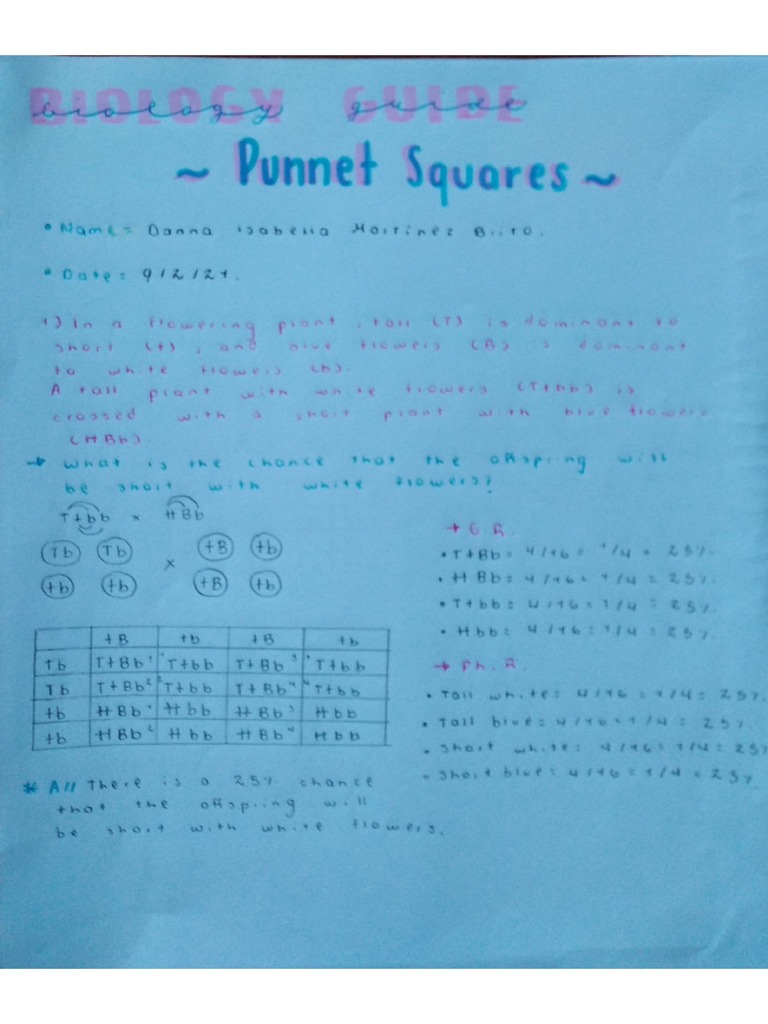 BIOLOGY GUIDE
biology guide
~ Punnet Squares ~
• Name = Danna Isabella Martinez Brito.
• Date: 9/2/21.
1) In a flowering plant, tall (T) is dominant to
short (t), and blue flowers (B) is dominant
to white flowers (b).
A tall plant with white flowers (Ttbb) is
crossed with a short plant with blue flowers
(ttBb)
→ What is the chance that the offspring will
be short with white flowers?
Ttbb x ttBb
Tb Tb x tB tb
tb tb tB tb
tB tb tB tb
Tb TtBb 1 Ttbb 1 TtBb 3 Ttbb
Tb TtBb 2 Ttbb 2 TtBb 4 Ttbb
tb ttBb 1 ttbb ttBb 3 ttbb
tb ttBb 2 ttbb ttBb 4 ttbb
→ G.R.
• TtBb = 4/16 = 1/4 = 25%.
• ttBb = 4/16 = 1/4 = 25%.
• Ttbb = 4/16 = 1/4 = 25%.
• ttbb = 4/16 = 1/4 = 25%.
→ Ph.R.
• Tall white = 4/16 = 1/4 = 25%.
• Tall blue = 4/16 = 1/4 = 25%.
• Short white = 4/16 = 1/4 = 25%
• Short blue = 4/16 = 1/4 = 25%
* A// There is a 25% chance
that the offspring will
be short with white flowers.